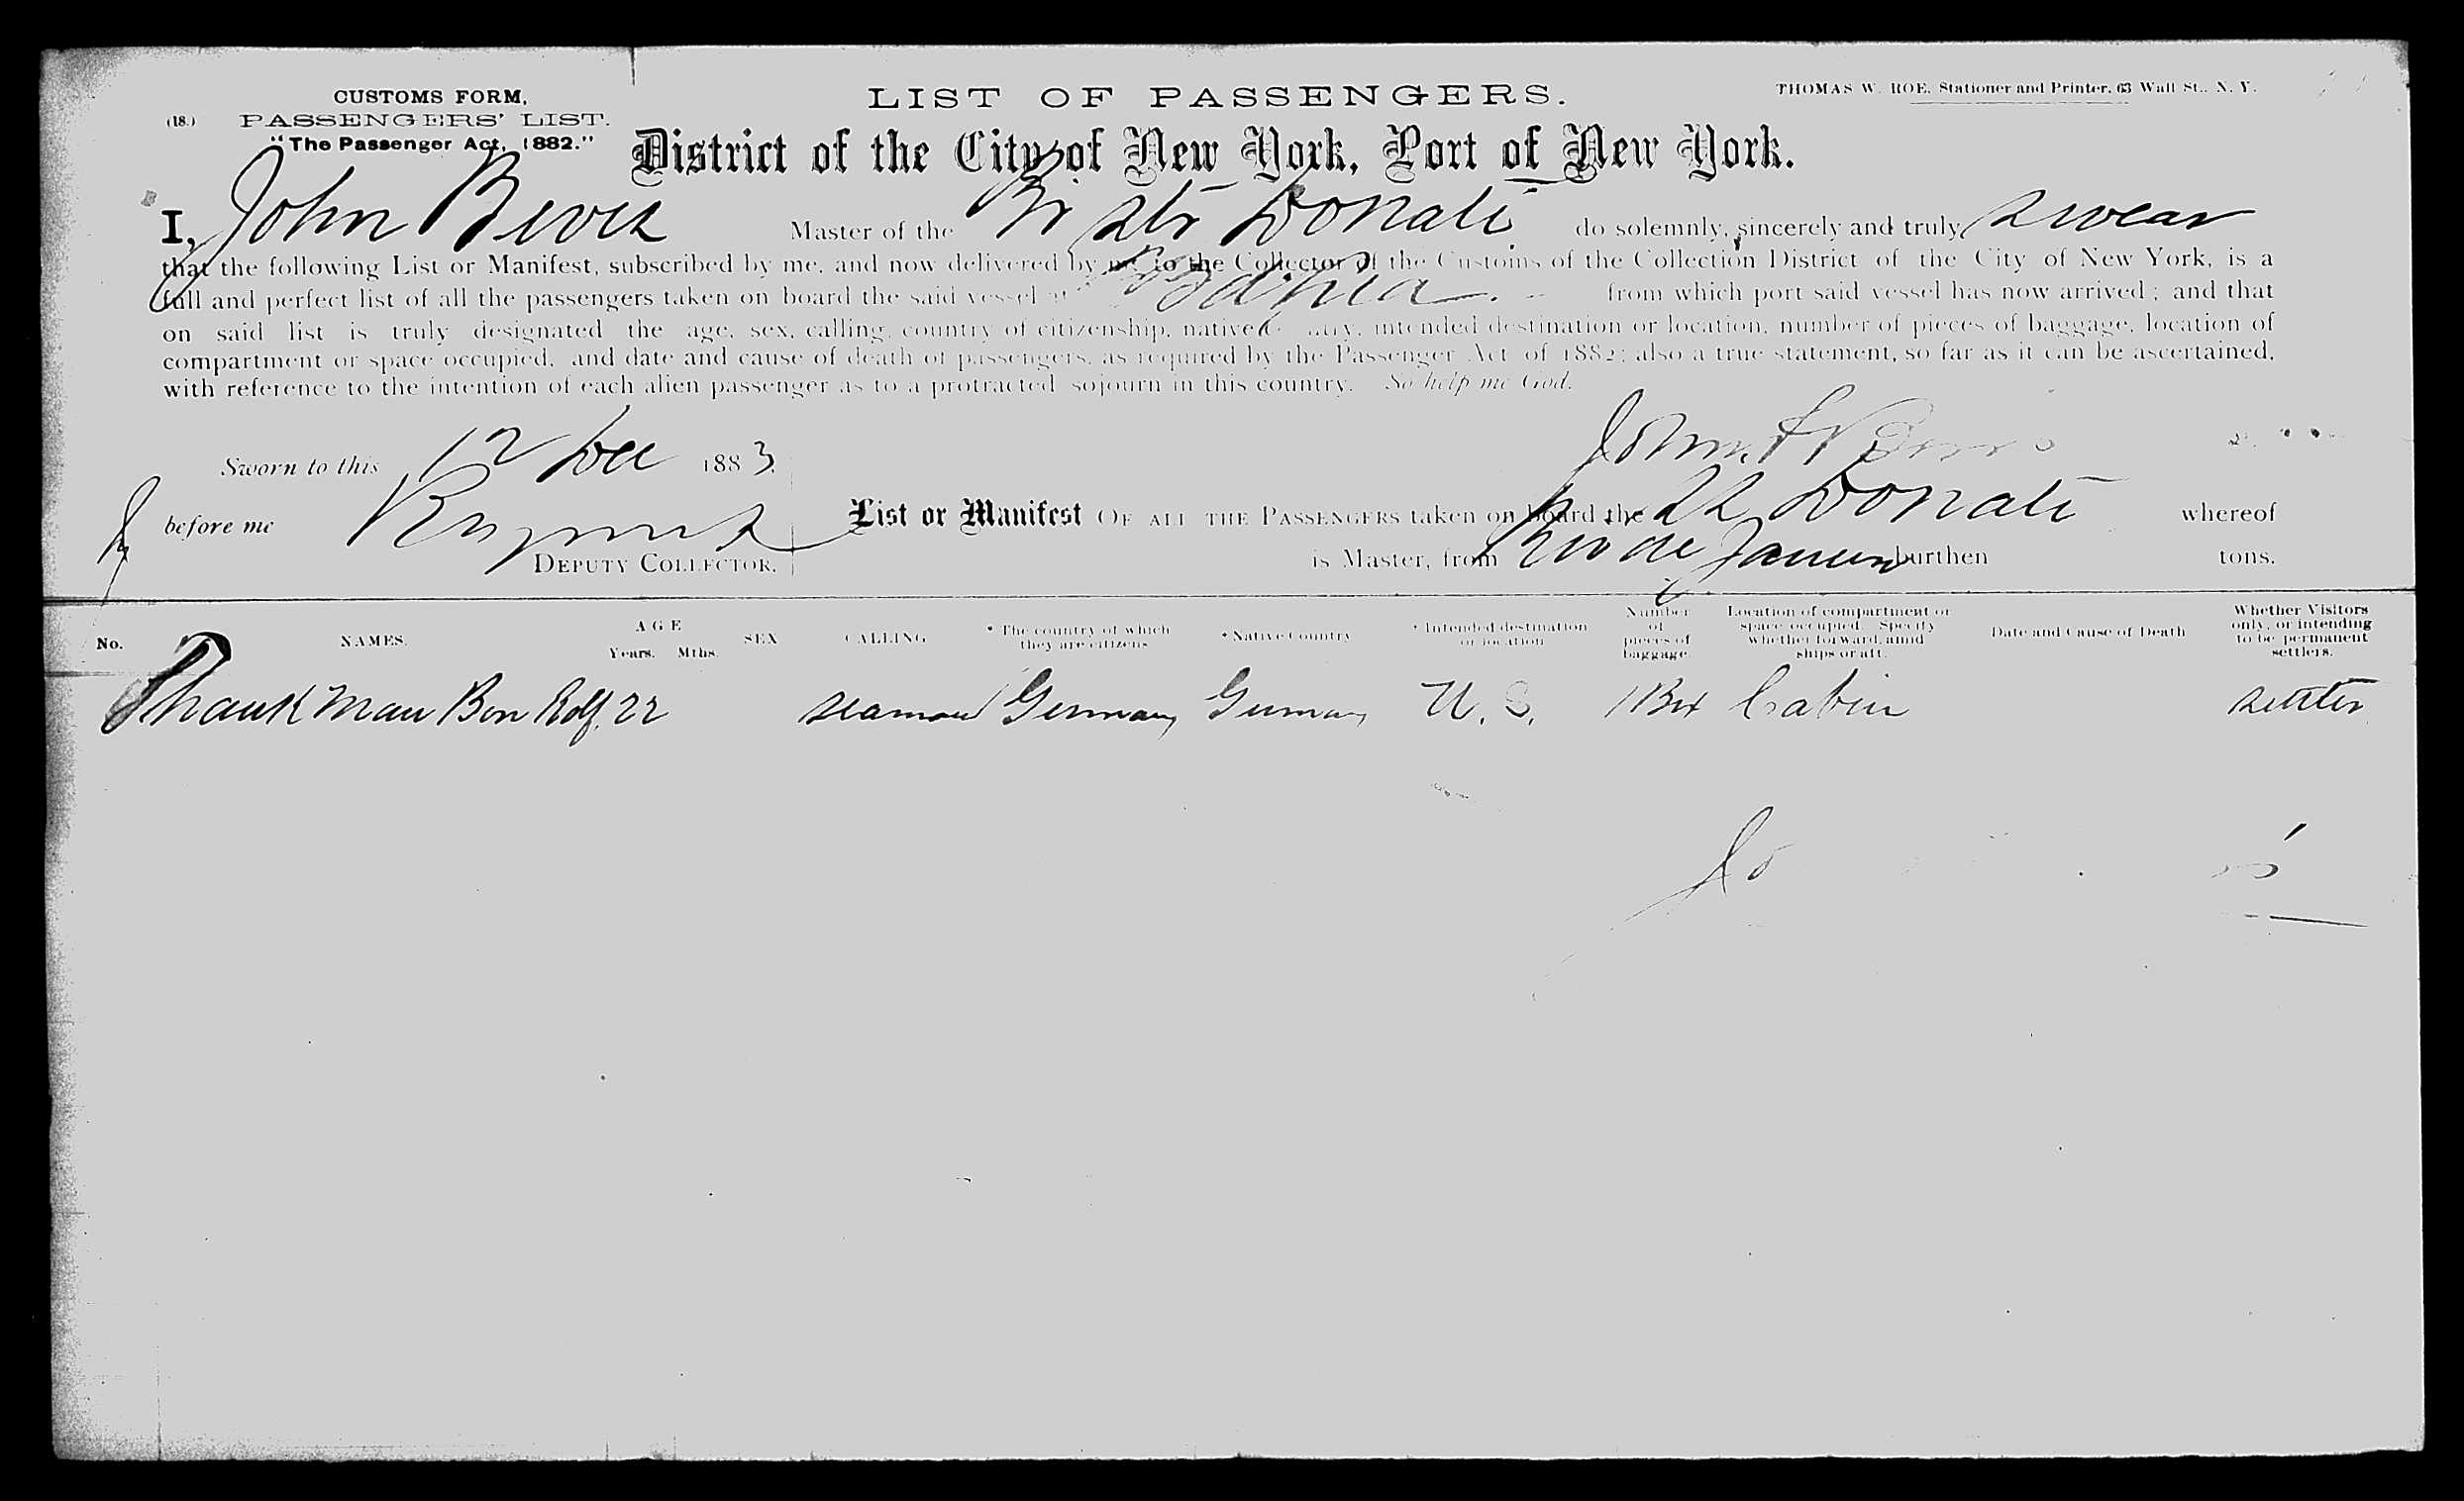 CUSTOMS FORM,
(18.) PASSENGERS' LIST.
"The Passenger Act, 1882."
LIST OF PASSENGERS.
THOMAS W. ROE, Stationer and Printer, 63 Wall St., N. Y.
District of the City of New York, Port of New York.
I, John Bevis Master of the Br Str Donati do solemnly, sincerely and truly swear
that the following List or Manifest, subscribed by me, and now delivered by me to the Collector of the Customs of the Collection District of the City of New York, is a
full and perfect list of all the passengers taken on board the said vessel at Bahia from which port said vessel has now arrived; and that
on said list is truly designated the age, sex, calling, country of citizenship, native intended destination or location, number of pieces of baggage, location of
compartment or space occupied, and date and cause of death of passengers, as required by the Passenger Act of 1882; also a true statement, so far as it can be ascertained,
with reference to the intention of each alien passenger as to a protracted sojourn in this country. So help me God.
Sworn to this 12 Dec 1883.
before me
DEPUTY COLLECTOR.
List or Manifest OF ALL THE PASSENGERS taken on board the SS Donati whereof
is Master, from Rio de Janeiro burthen tons.
No. NAMES. AGE Years. Mths. SEX CALLING * The country of which they are citizens * Native Country * Intended destination or location Number of pieces of baggage. Location of compartment or space occupied. Specify whether forward, amid ships or aft. Date and Cause of Death Whether Visitors only, or intending to be permanent settlers.
22 seaman Germany Germany U. S. 1 Box Cabin settler